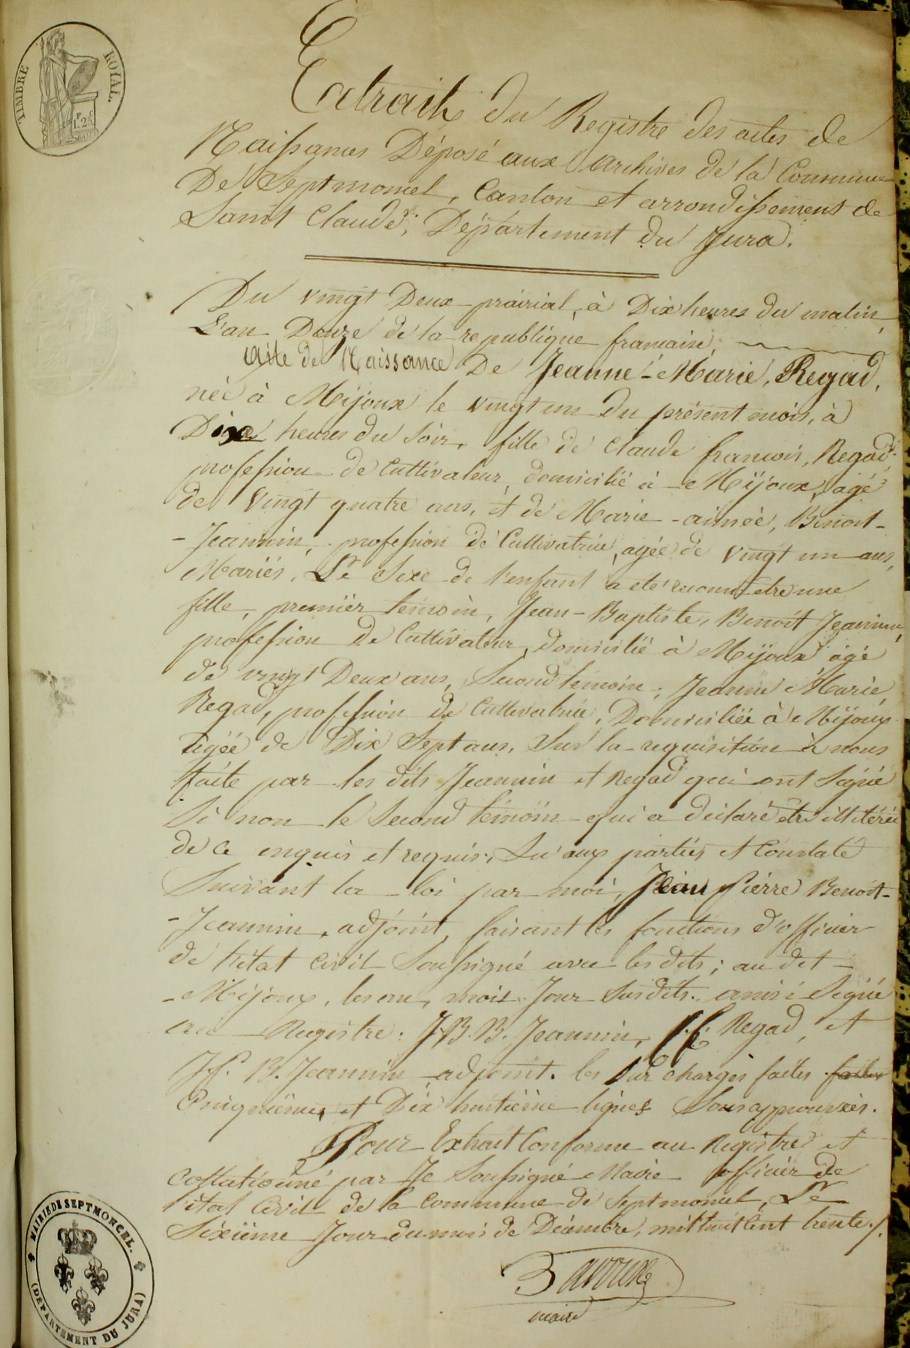 TIMBRE ROYAL.
Extrait du Registre des actes de
Naissances Déposé aux archives de la Commune
De Septmoncel, Canton et arrondissement de
Saint Claude, Département du Jura.
Du vingt Deux prairial, à Dix heures du matin,
L'an Douze de la republique francaise,
Acte de Naissance De Jeanne-Marie, Regad,
née à Mijoux le vingt un du présent mois, à
Dix heures du Soir, fille de Claude francois, Regad,
profession de Cultivateur, domicilié à Mijoux, agé
de vingt quatre ans, et de Marie-aimée, Benoit-
-Jeannin, profession de Cultivatrice, agée de vingt un ans,
Mariés. Le Sexe de l'enfant a été reconnu être une
fille, premier témoin, Jean-Baptiste, Benoit Jeannin,
profession de Cultivateur, domicilié à Mijoux agé
de vingt Deux ans, Second témoin, Jeanne Marie
Regad, profession de Cultivatrice, Domiciliée à Mijoux
agée de Dix Sept ans. Sur la requisition à nous
faite par les dits Jeannin et Regad qui ont Signé
Si non le Second témoin qui a déclaré être illitérée
de ce enquis et requis, Lu aux parties et Constaté
Suivant la loi par moi, Jean Pierre Benoit-
-Jeannin, adjoint, faisant les fonctions d'officier
de l'état Civil Soussigné avec les dits; au dit
-Mijoux, les an, mois Jour Susdits. ainsi Signé
au Registre: J.B.B. Jeannin, C.f. Regad, et
J.P. B. Jeannin adjoint. les Sur charges faites faites
Cinquième, et Dix huitième lignes Sous approuvées.
Pour Extrait Conforme au Registre et
Collationné par Je Soussigné Maire officier de
l'état Civil de la Commune de Septmoncel, Le
Sixième Jour du mois de Décembre, mil huit Cent trente./.
maire
MAIRIE DE SEPTMONCEL.
(DÉPARTEMENT DU JURA)